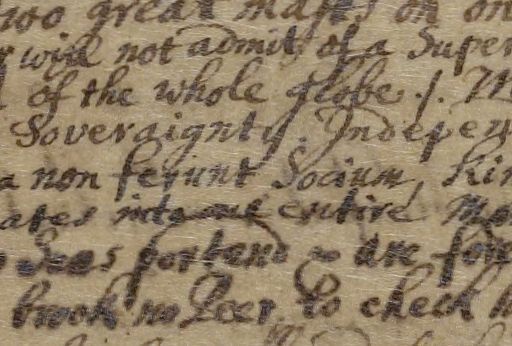 too great masts on on
r will not admit of a Super
of the whole globe. /. M
Soveraignty. Indepen
a non ferunt Socium, Kin
ates into one entire Mon
Seas forband are for
brook no Peer. to check